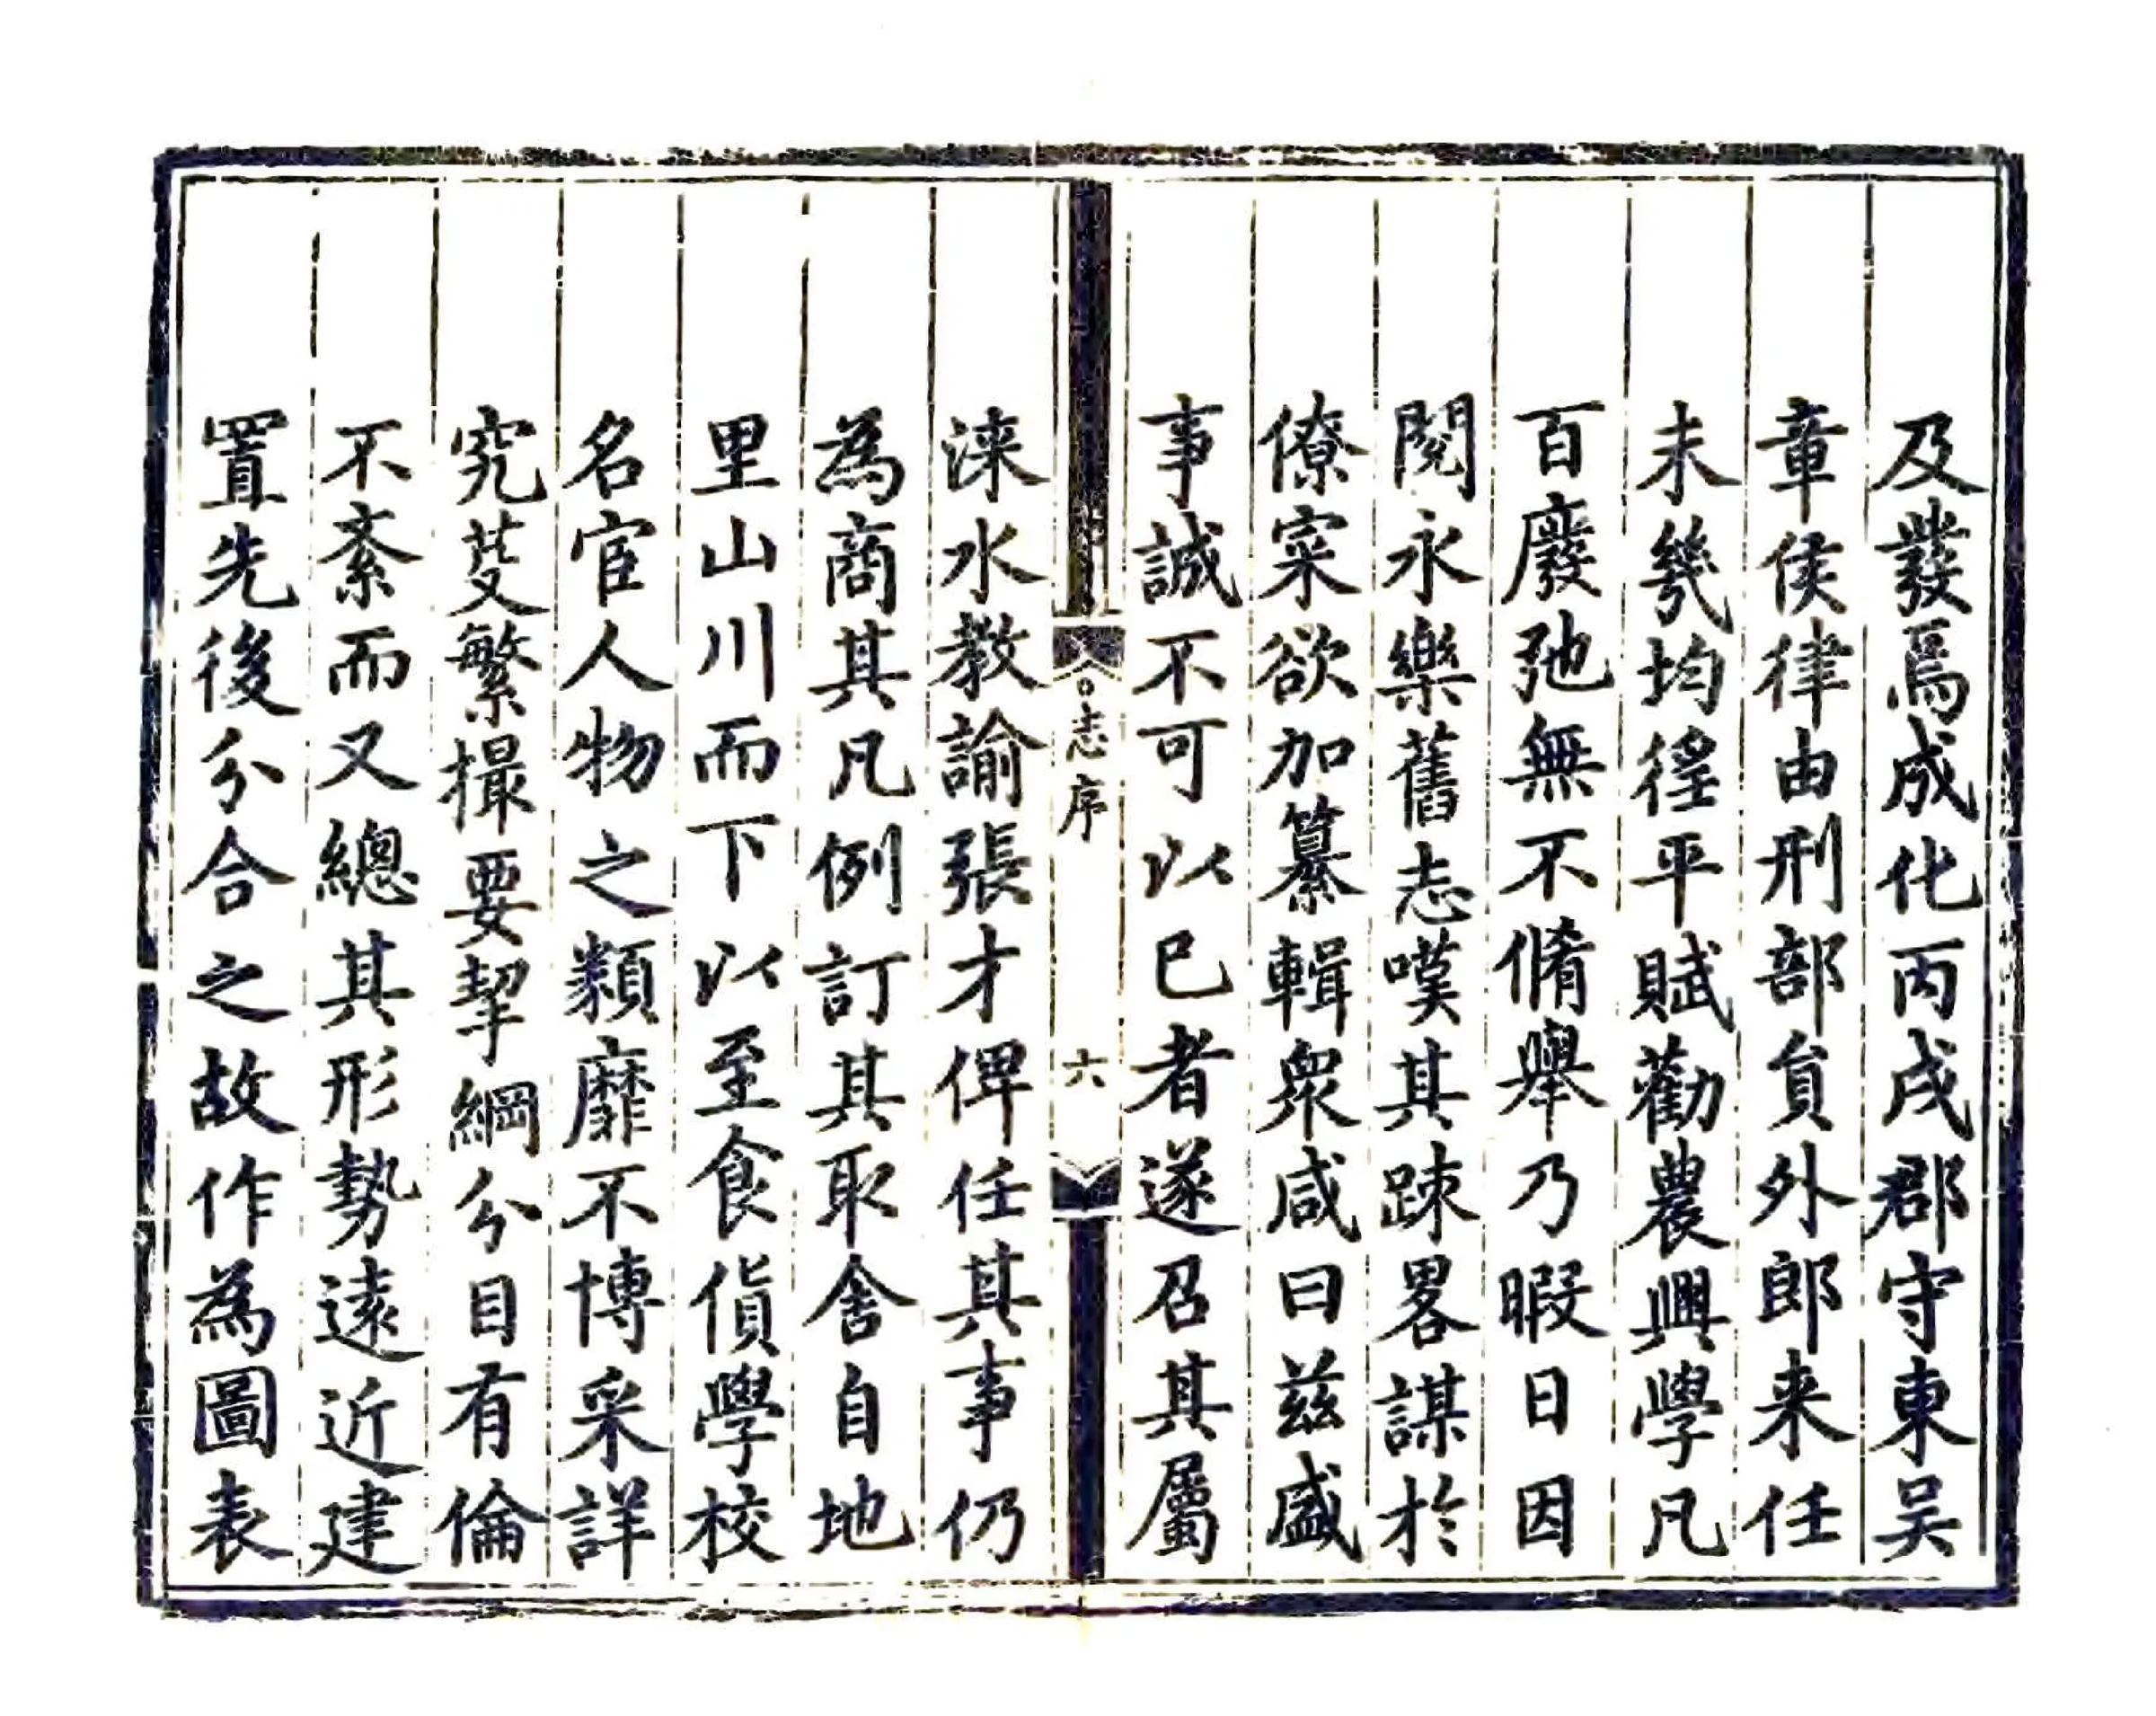 及發焉成化丙戌郡守東吴
章侯律由刑部貟外郎来任
未㡬均徭平賦勸農興學凡
百廢弛無不脩舉乃暇日因
閱永樂舊志嘆其踈畧謀於
僚寀欲加纂輯衆咸曰兹盛
事誠不可以已者遂召其屬
志序
六
涞水教諭張才俾任其事仍
為商其凡例訂其取舍自地
里山川而下以至食貨學校
名宦人物之類靡不博采詳
究芟繁撮要挈綱分目有倫
不紊而又總其形勢遠近建
置先後分合之故作為圖表